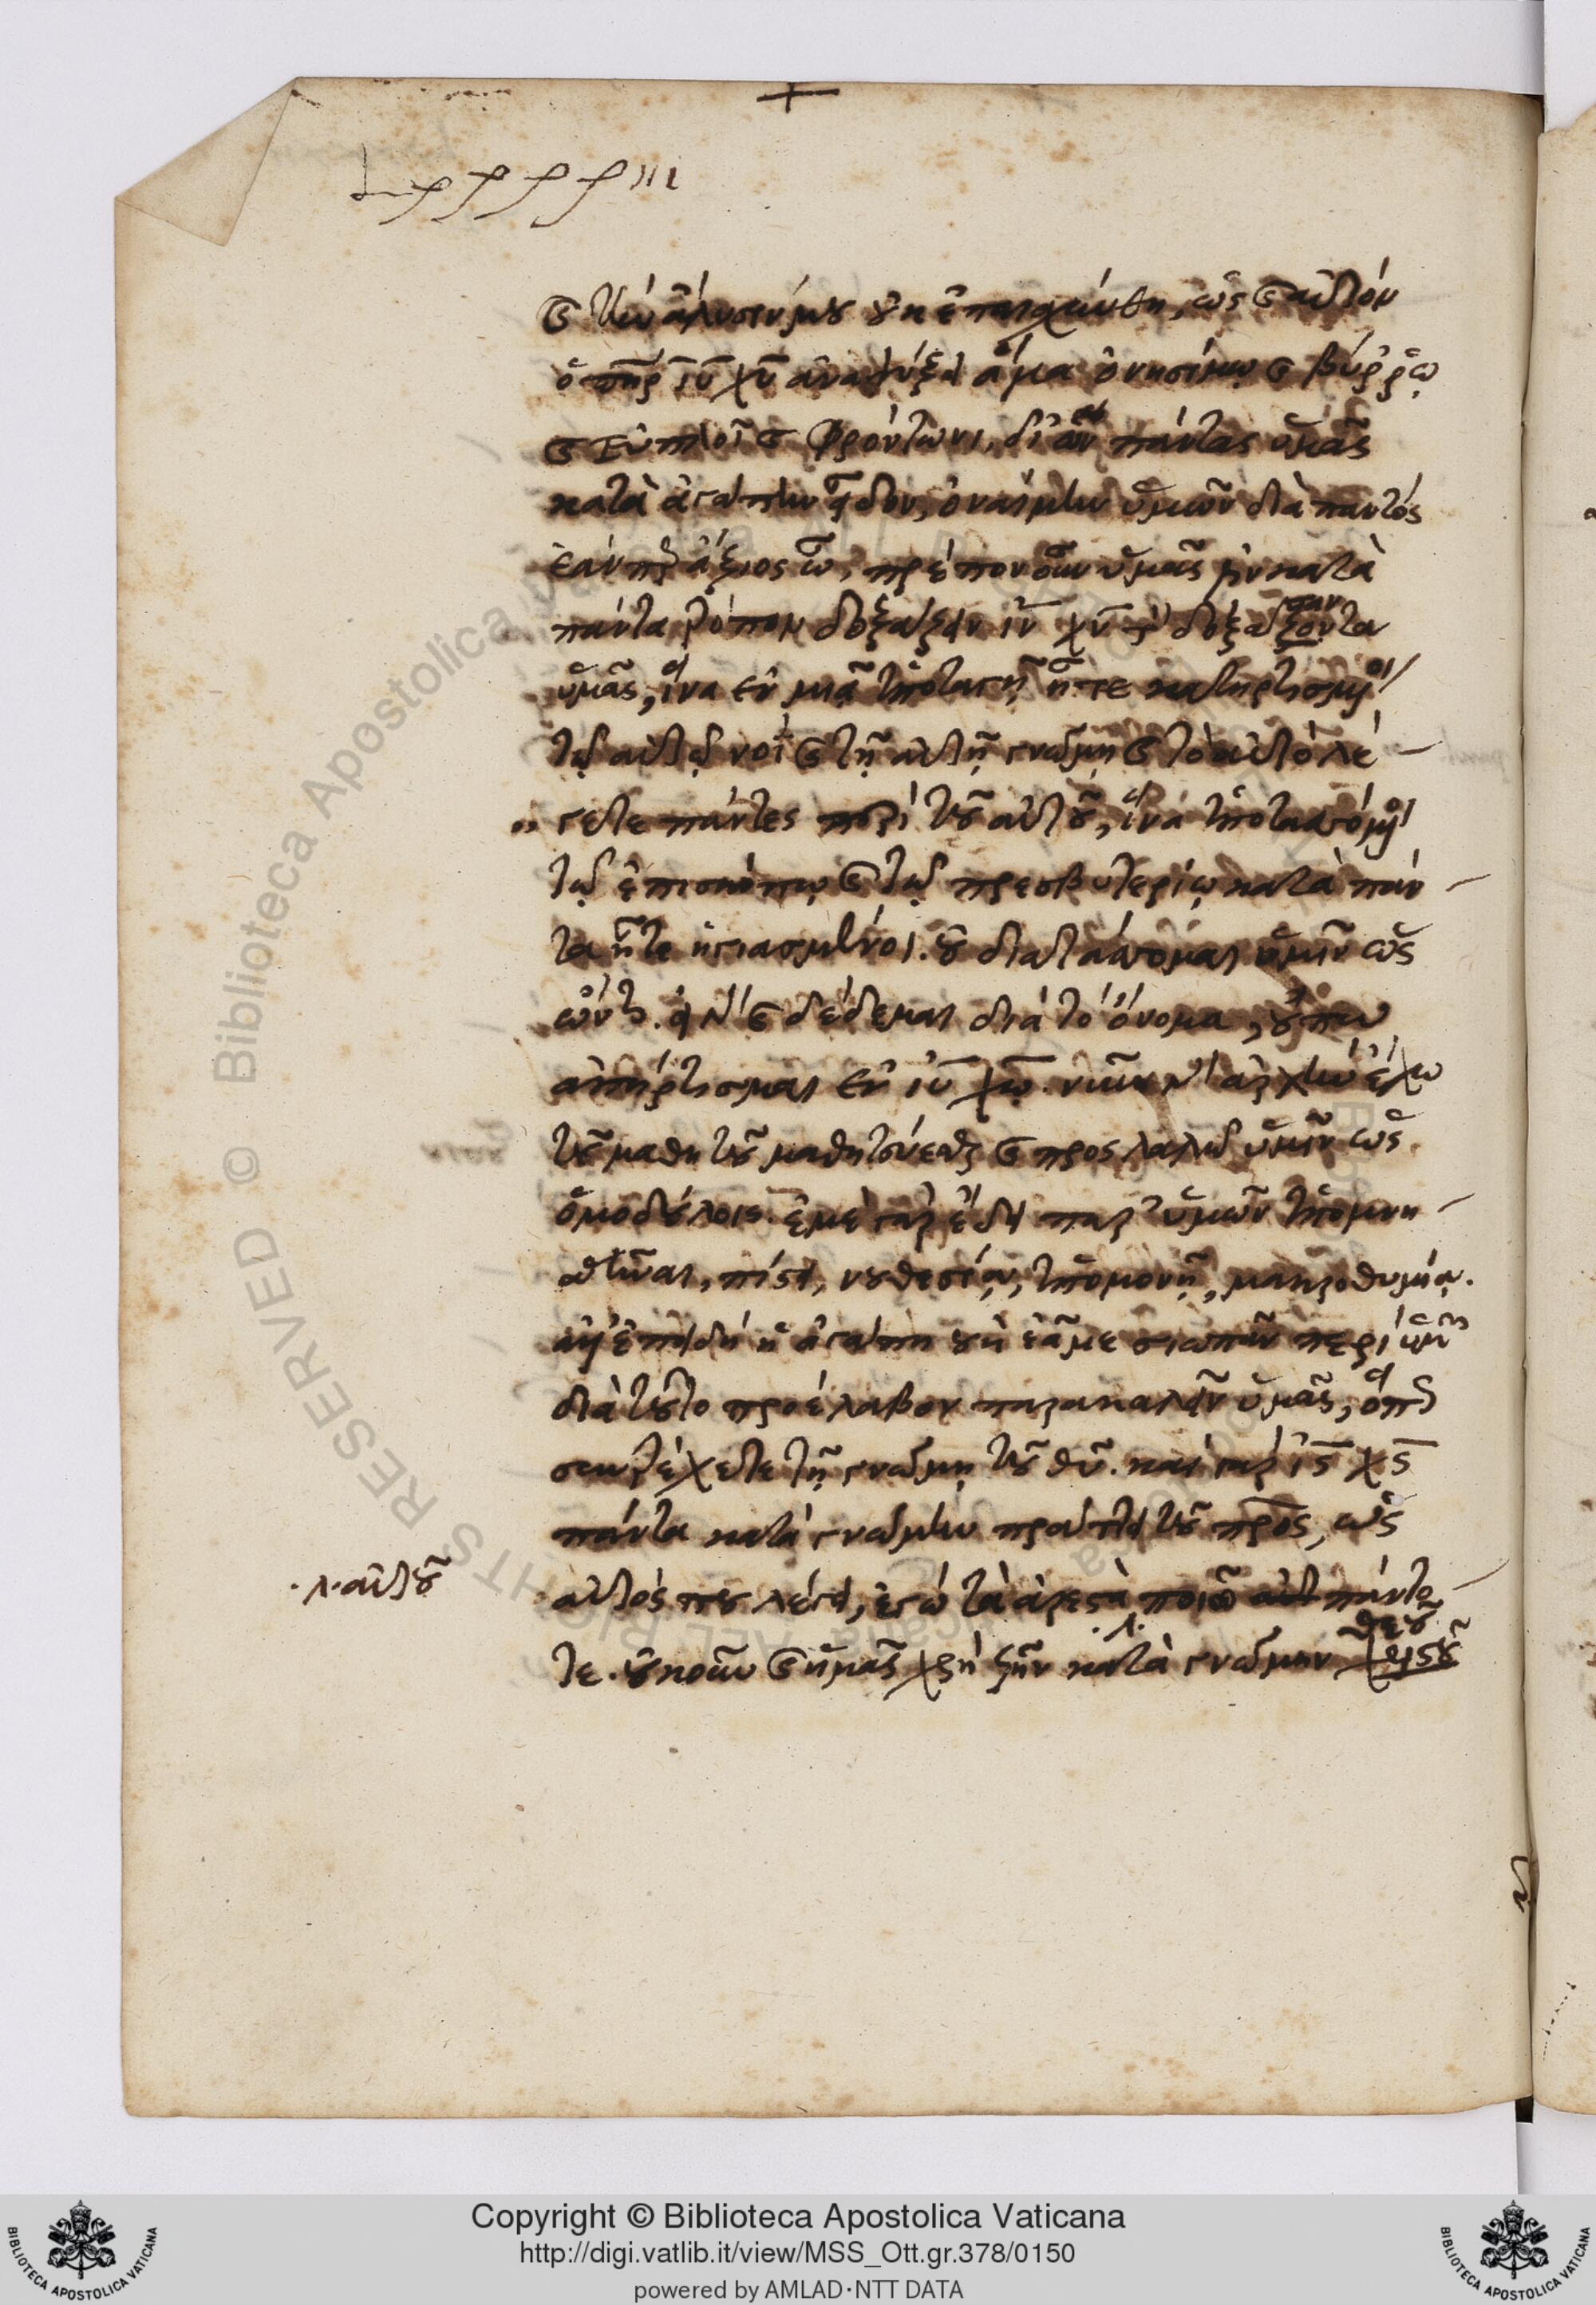 καὶ τὴν ἅλυσίν μου οὐκ ἐπαισχύνθη, ὡς καὶ αὐτὸν
ὁ πηρ ιυ χυ ἀναψύξει ἅμα ὀνησίμῳ καὶ βύρρῳ
καὶ εὔπλοι καὶ φρόντωνι, δι' ὧν πάντας ὑμᾶς
κατὰ ἀγάπην εἶδον, ὀναίμην ὑμῶν διὰ παντός
ἐάνπερ ἄξιος ὦ, πρέπον οὖν ὑμᾶς κατὰ
πάντα τρόπον δοξάζειν ιν χν τὸν δοξάζοντα
σαν
ὑμᾶς, ἵνα ἐν μιᾷ ὑποταγῇ ἦτε κατηρτισμένοι
τῷ αὐτῷ νοῒ καὶ τῇ αὐτῇ γνώμῃ καὶ τὸ αὐτὸ λέ-
γετε πάντες περὶ τοῦ αὐτοῦ, ἵνα ὑποτασσόμενοι
τῷ ἐπισκόπῳ καὶ τῷ πρεσβυτερίῳ κατὰ πάν-
τα ἦτε ἡγιασμένοι. οὐ διατάσσομαι ὑμῖν ὡς
ὤν τις. εἰ γὰρ καὶ δέδεμαι διὰ τὸ ὄνομα, οὔπω
ἀπήρτισμαι ἐν ιυ χω. νῦν γὰρ ἀρχὴν ἔχω
τοῦ μαθητοῦ μαθητεύεσθαι καὶ προσλαλῶ ὑμῖν ὡς
ὁμοδούλοις. ἐμὲ γὰρ ἔδει παρ' ὑμῶν ὑπομνη-
σθῆναι, πίστει, νουθεσίᾳ, ὑπομονῇ, μακροθυμίᾳ.
ἀλλ' ἐπειδὴ ἡ ἀγάπη οὐκ ἐᾷ με σιωπᾶν περὶ ὑμῶν
διὰ τοῦτο προέλαβον παρακαλεῖν ὑμᾶς, ὅπως
συντρέχετε τῇ γνώμῃ τοῦ θυ. καὶ γὰρ ις χς
πάντα κατὰ γνώμην πράττει τοῦ προς, ὡς
αὐτός που λέγει, ἐγὼ τὰ ἀρεστὰ ποιῶ αὐτ πάντο-
.λ. αὐτοῦ
τε. οὐκοῦν καὶ ἡμᾶς χρὴ ζῆν κατὰ γνώμην χριστοῦ
.λ. θεοῦ
Copyright © Biblioteca Apostolica Vaticana
http://digi.vatlib.it/view/MSS_Ott.gr.378/0150
powered by AMLAD·NTT DATA
BIBLIOTECA APOSTOLICA VATICANA
BIBLIOTECA APOSTOLICA VATICANA